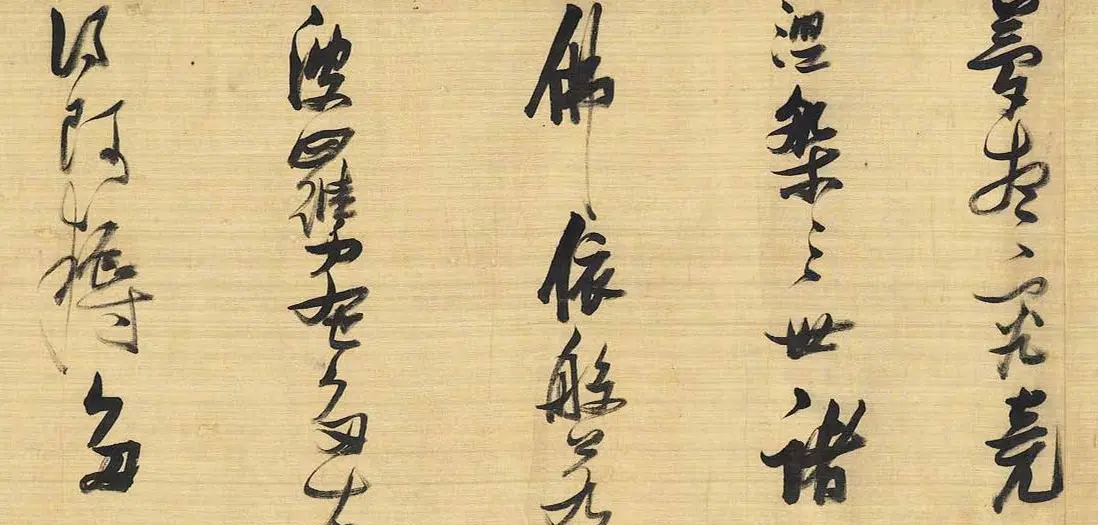 夢想究竟
涅槃三世諸
佛依般若
波羅蜜多故
得阿耨多